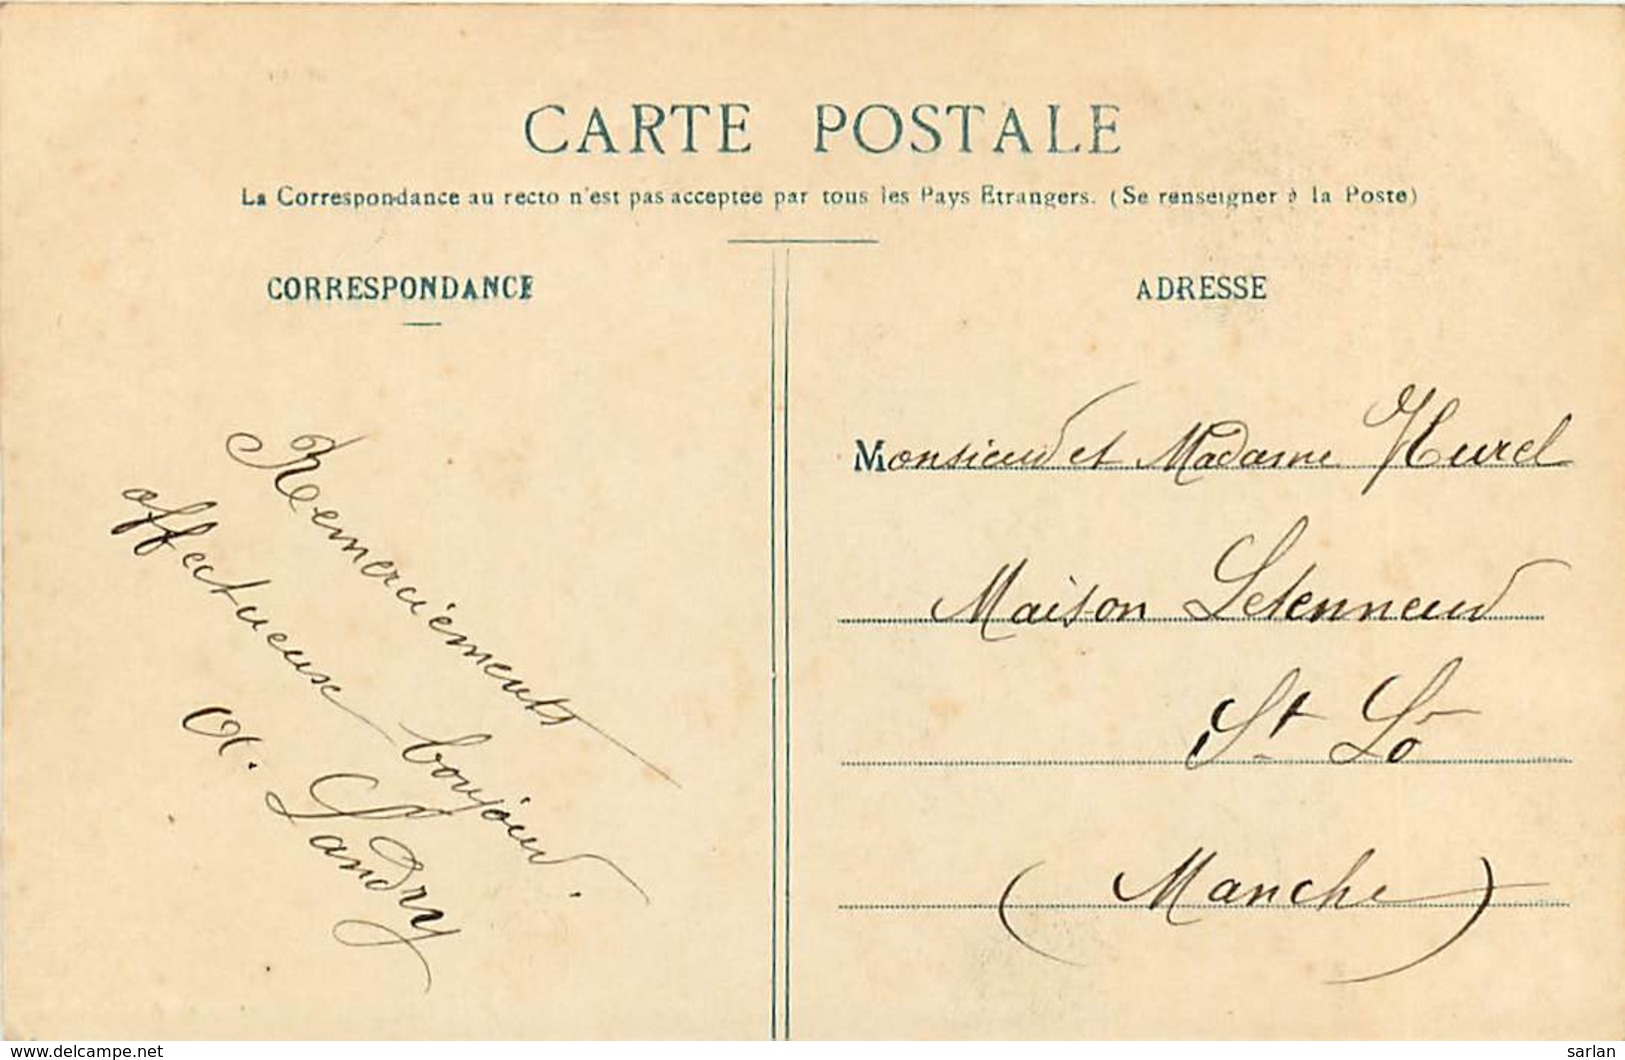 CARTE POSTALE
La Correspondance au recto n'est pas acceptee par tous les Pays Etrangers. (Se renseigner à la Poste)
CORRESPONDANCE
Remerciements
affectueux bonjour.
A. Landry
ADRESSE
Monsieur et Madame Hurel
Maison Letenneur
St Lô
(Manche)
www.delcampe.net
sarlan